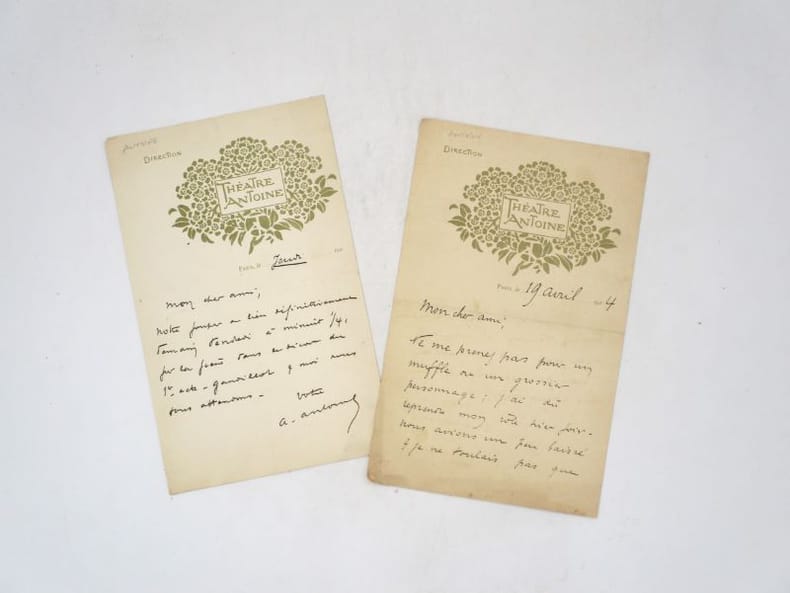 ANTOINE
DIRECTION
THÉATRE
ANTOINE
PARIS, le Jeudi 190
Mon cher ami,
notre souper a lieu définitivement
demain Vendredi à minuit 1/4,
sur la dans le décor du
1er acte - & moi vous
vous attendons - votre
A. Antoine
ANTOINE
DIRECTION
THÉATRE
ANTOINE
PARIS, le 19 avril 190 4
Mon cher ami,
Ne me prenez pas pour un
muffle ou un grossier
personnage ; j'ai dû
reprendre mon rôle hier soir -
nous avions un peu baissé
& je ne voulais pas que